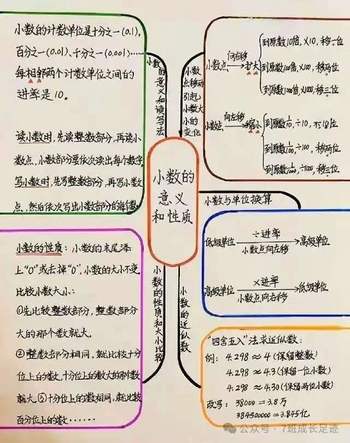 小数的计数单位是十分之一(0.1),
百分之一(0.01)、千分之一(0.001)……
每相邻两个计数单位之间的
进率是10。
读小数时,先读整数部分,再读小
数点,小数部分是依次读出每个数字
写小数时,先写整数部分,再写小数
点,然后依次写出小数部分的每位数
小数的意义和读写法
小数点移动引起小数大小的变化
小数点 向右移 扩大
到原数10倍,×10,移一位
到原数100倍,×100,移两位
到原数1000倍,×1000,移三位
小数点 向左移 缩小
到原数1/10,÷10,移一位
到原数1/100,÷100,移两位
到原数1/1000,÷1000,移三位
小数的
意义
和
性质
小数与单位换算
低级单位 ÷进率 小数点向左移 高级单位
高级单位 ×进率 小数点向右移 低级单位
小数的性质和大小比较
小数的性质:小数的末尾添
上"0"或去掉"0",小数的大小不变
比较小数大小:
①先比较整数部分,整数部分
大的那个数就大。
②整数部分相同,就比较十分
位上的分数,十分位上的数大的那个数
就大。③十分位上的数相同,就比较
百分位上的数……
小数的近似数
"四舍五入"法求近似数:
例:4.298≈4(保留整数)
4.298≈4.3(保留一位小数)
4.298≈4.30(保留两位小数)
改写:38000=3.8万
384500000=3.845亿
公众号·7班成长足迹